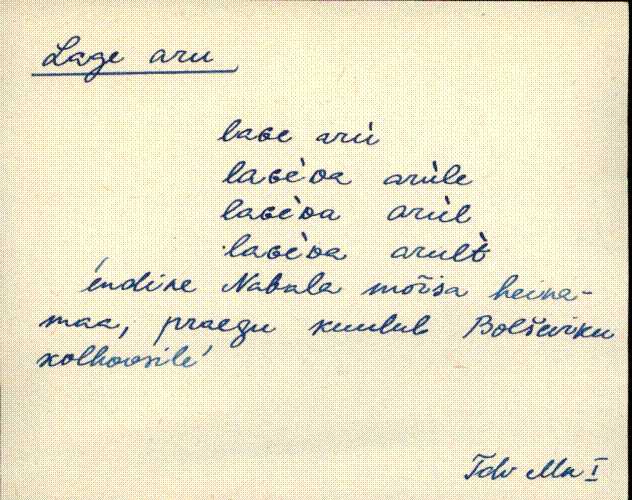 Lage aru
laɢe arù
laɢèᴅa arùle
laɢèᴅa arùl
laɢèᴅa arult̀
endine Nabala mõisa heina-
maa, praegu kuulub Bolševiku
kolhoosile